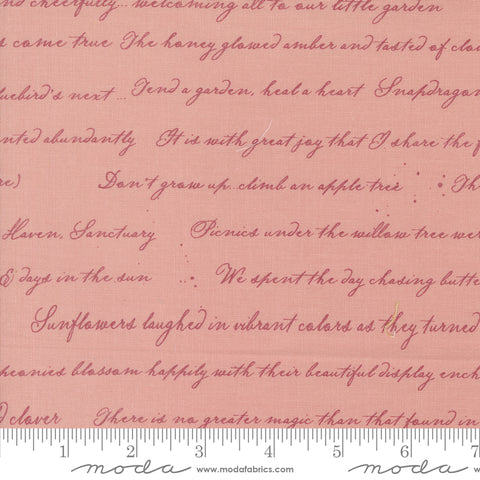 nd cheerfully... welcoming all to our little garden
s come true The honey glowed amber and tasted of clov
uebird's next ... Tend a garden, heal a heart Snapdragon
nted abundantly It is with great joy that I share the f
re) Don't grow up...climb an apple tree Th
Haven, Sanctuary Picnics under the willow tree wer
E days in the sun We spent the day chasing butte
Sunflowers laughed in vibrant colors as they turned
peonies blossom happily with their beautiful display ench
d clover There is no greater magic than that found in
1 2 3 4 5 6 7
moda www.modafabrics.com moda